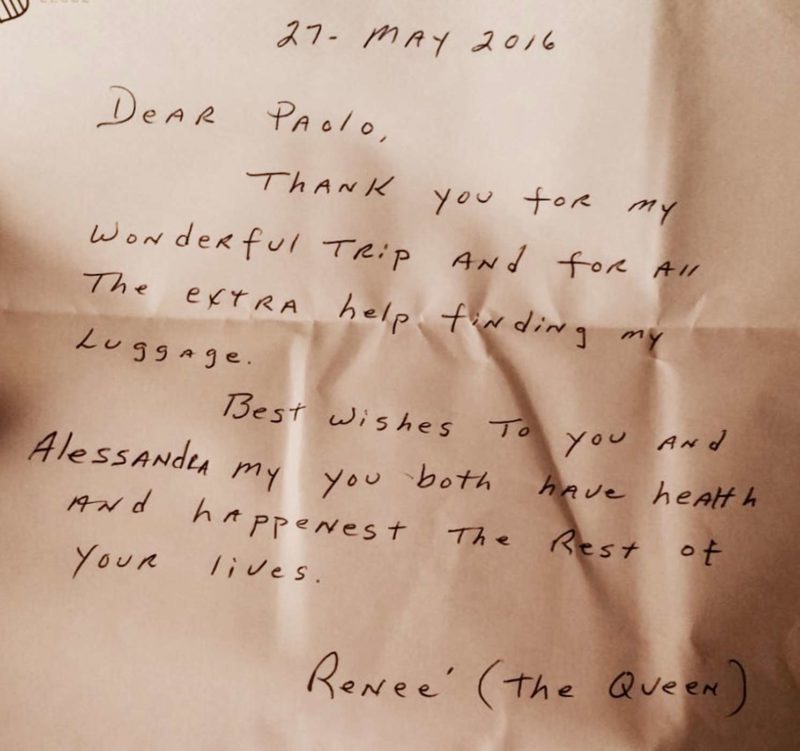 27- MAY 2016
DeAR PAolo,
THANK you foR my
WoNdeRful TRip ANd foR All
The extRA help finding my
Luggage.
Best wishes To you ANd
AlessANdRA my you both hAve heAlth
ANd hAppeNest The Rest of
YouR lives.
ReNee' (The QueeN)